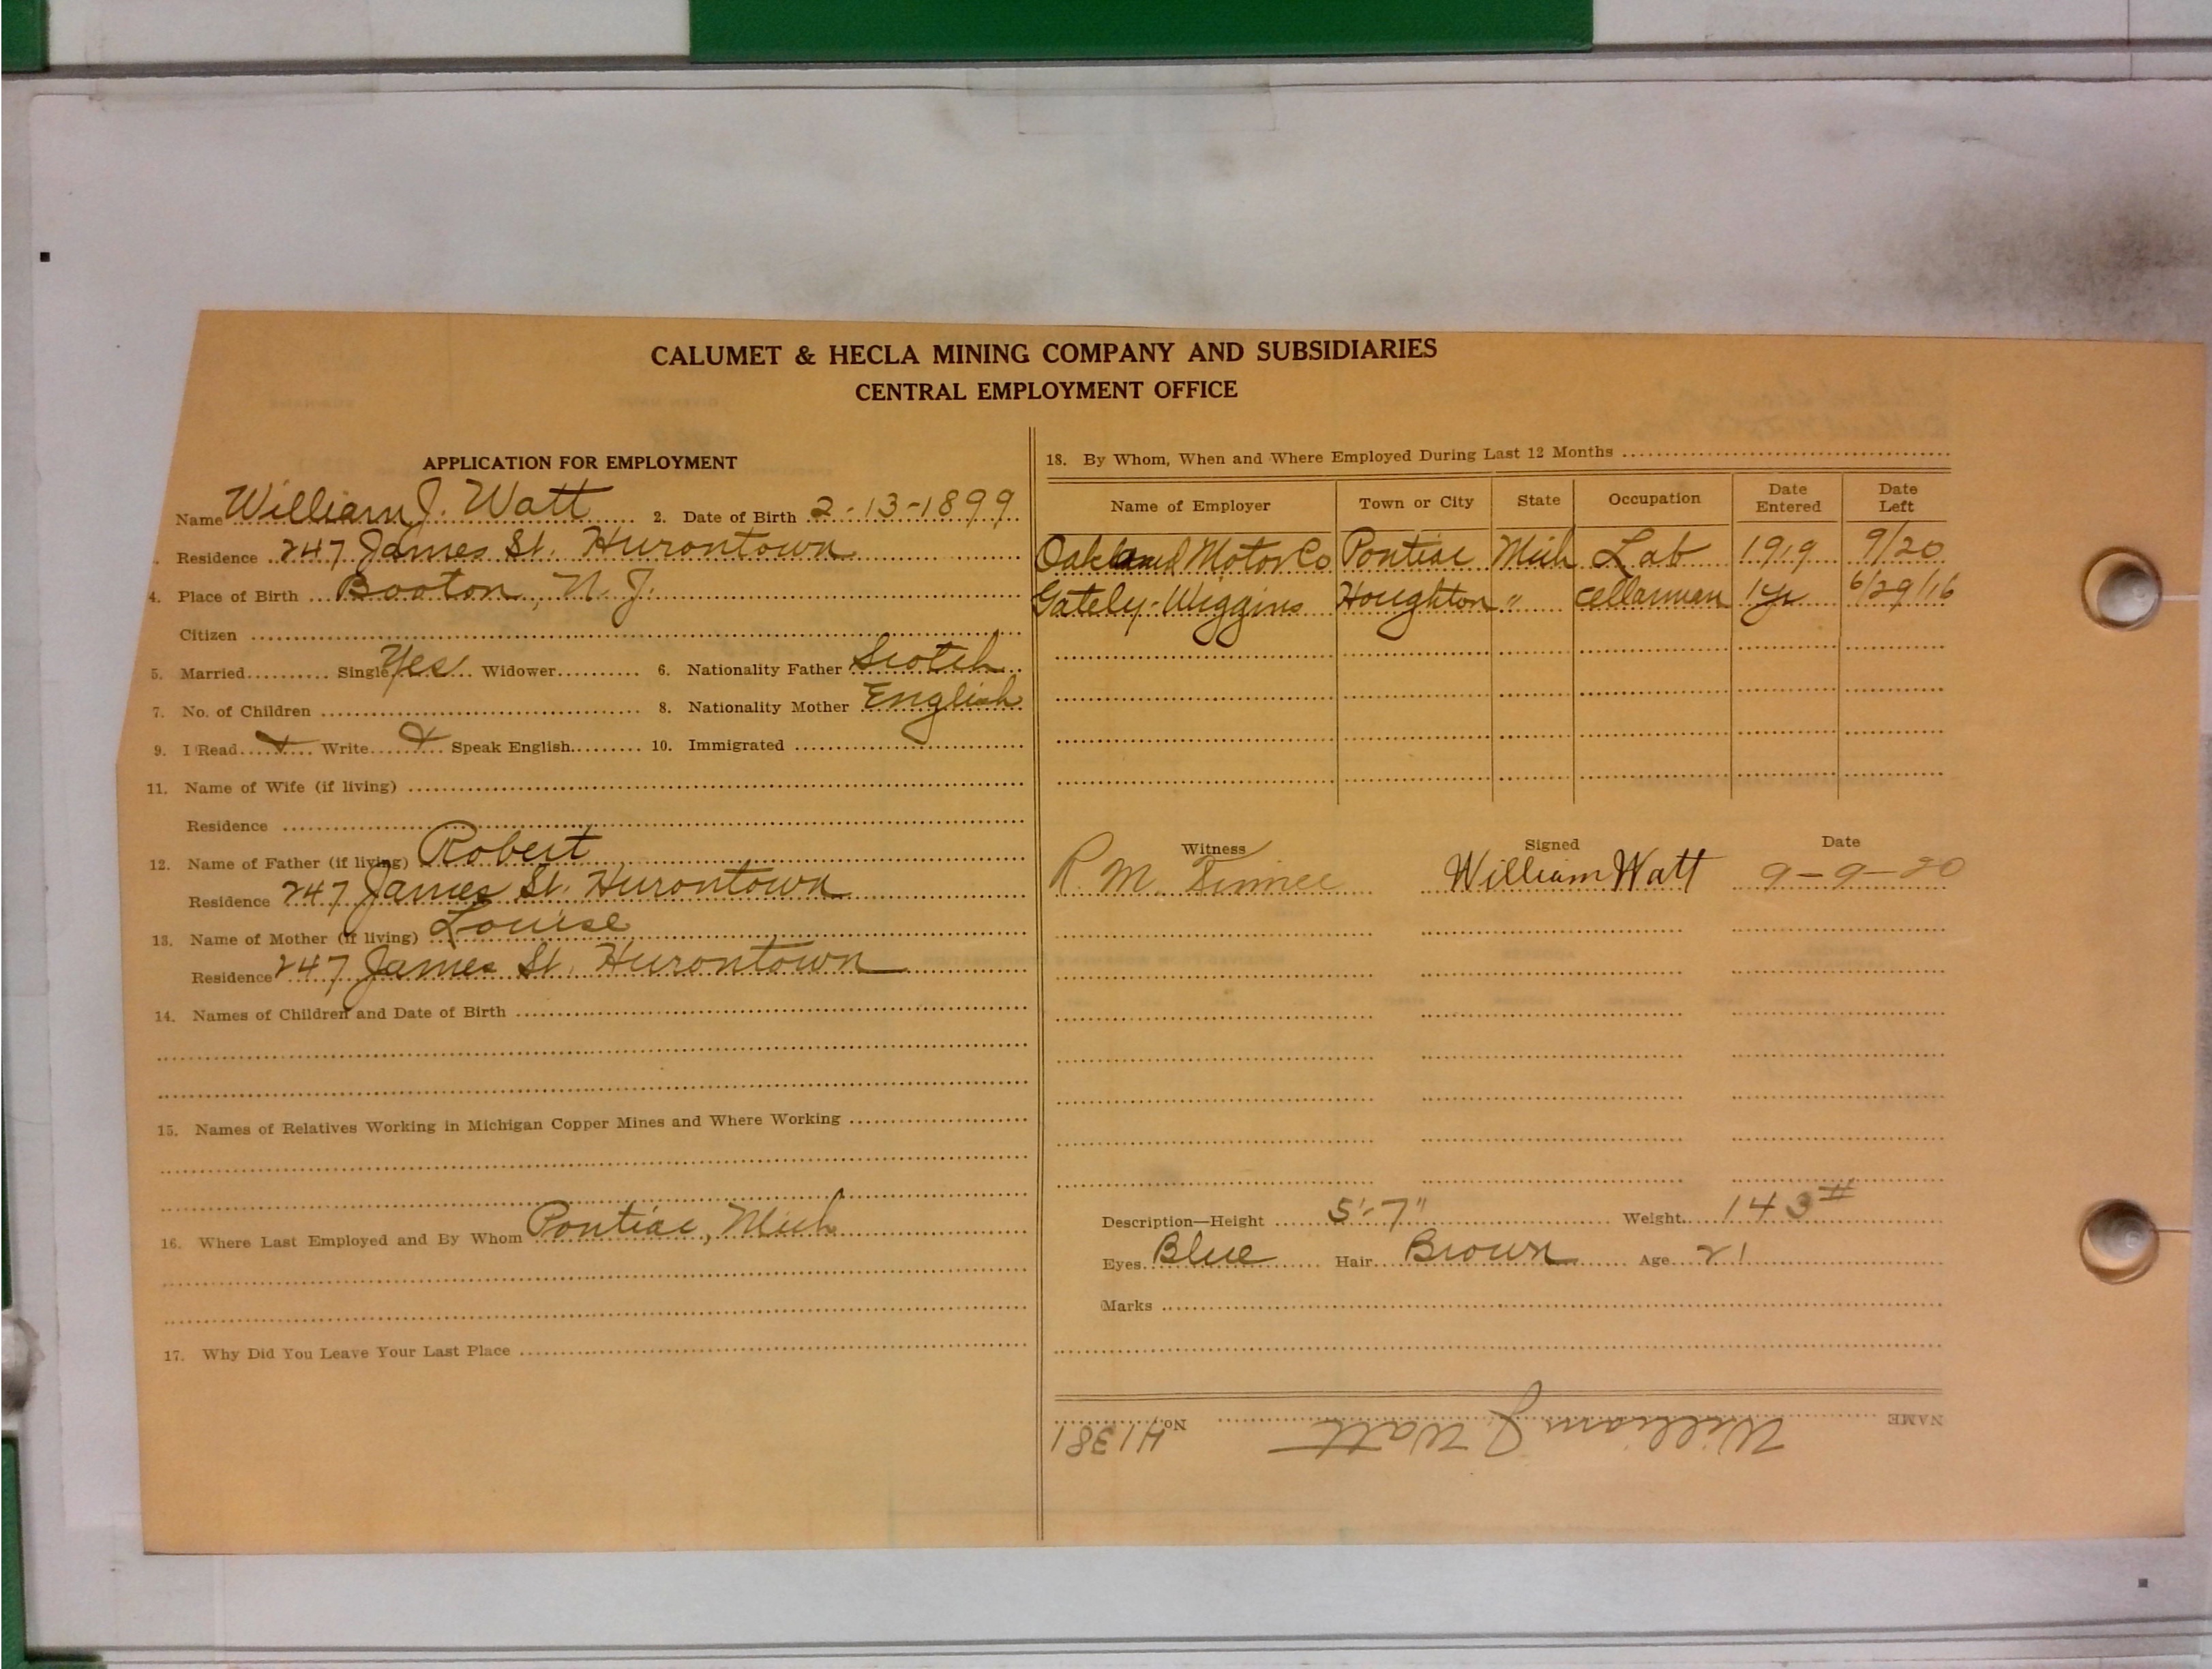 CALUMET & HECLA MINING COMPANY AND SUBSIDIARIES
CENTRAL EMPLOYMENT OFFICE
APPLICATION FOR EMPLOYMENT
Name William J. Watt 2. Date of Birth 2-13-1899
Residence 247 James St. Hurontown
4. Place of Birth Booton, N. J.
Citizen
5. Married Single Yes Widower 6. Nationality Father Scotch
7. No. of Children 8. Nationality Mother English
9. I Read Write Speak English 10. Immigrated
11. Name of Wife (if living)
Residence
12. Name of Father (if living) Robert
Residence 247 James St. Hurontown
13. Name of Mother (if living) Louise
Residence 247 James St. Hurontown
14. Names of Children and Date of Birth
15. Names of Relatives Working in Michigan Copper Mines and Where Working
16. Where Last Employed and By Whom Pontiac, Mich
17. Why Did You Leave Your Last Place
18. By Whom, When and Where Employed During Last 12 Months
Name of Employer Town or City State Occupation Date Entered Date Left
Oakland Motor Co Pontiac Mich Lab 1919 9/20
Gately-Wiggins Houghton " cellarman 1 yr 6/29/16
Witness Signed Date
R. M. William Watt 9-9-20
Description—Height 5'-7" Weight 143#
Eyes Blue Hair Brown Age 21
Marks
NAME William J Watt No. H1381